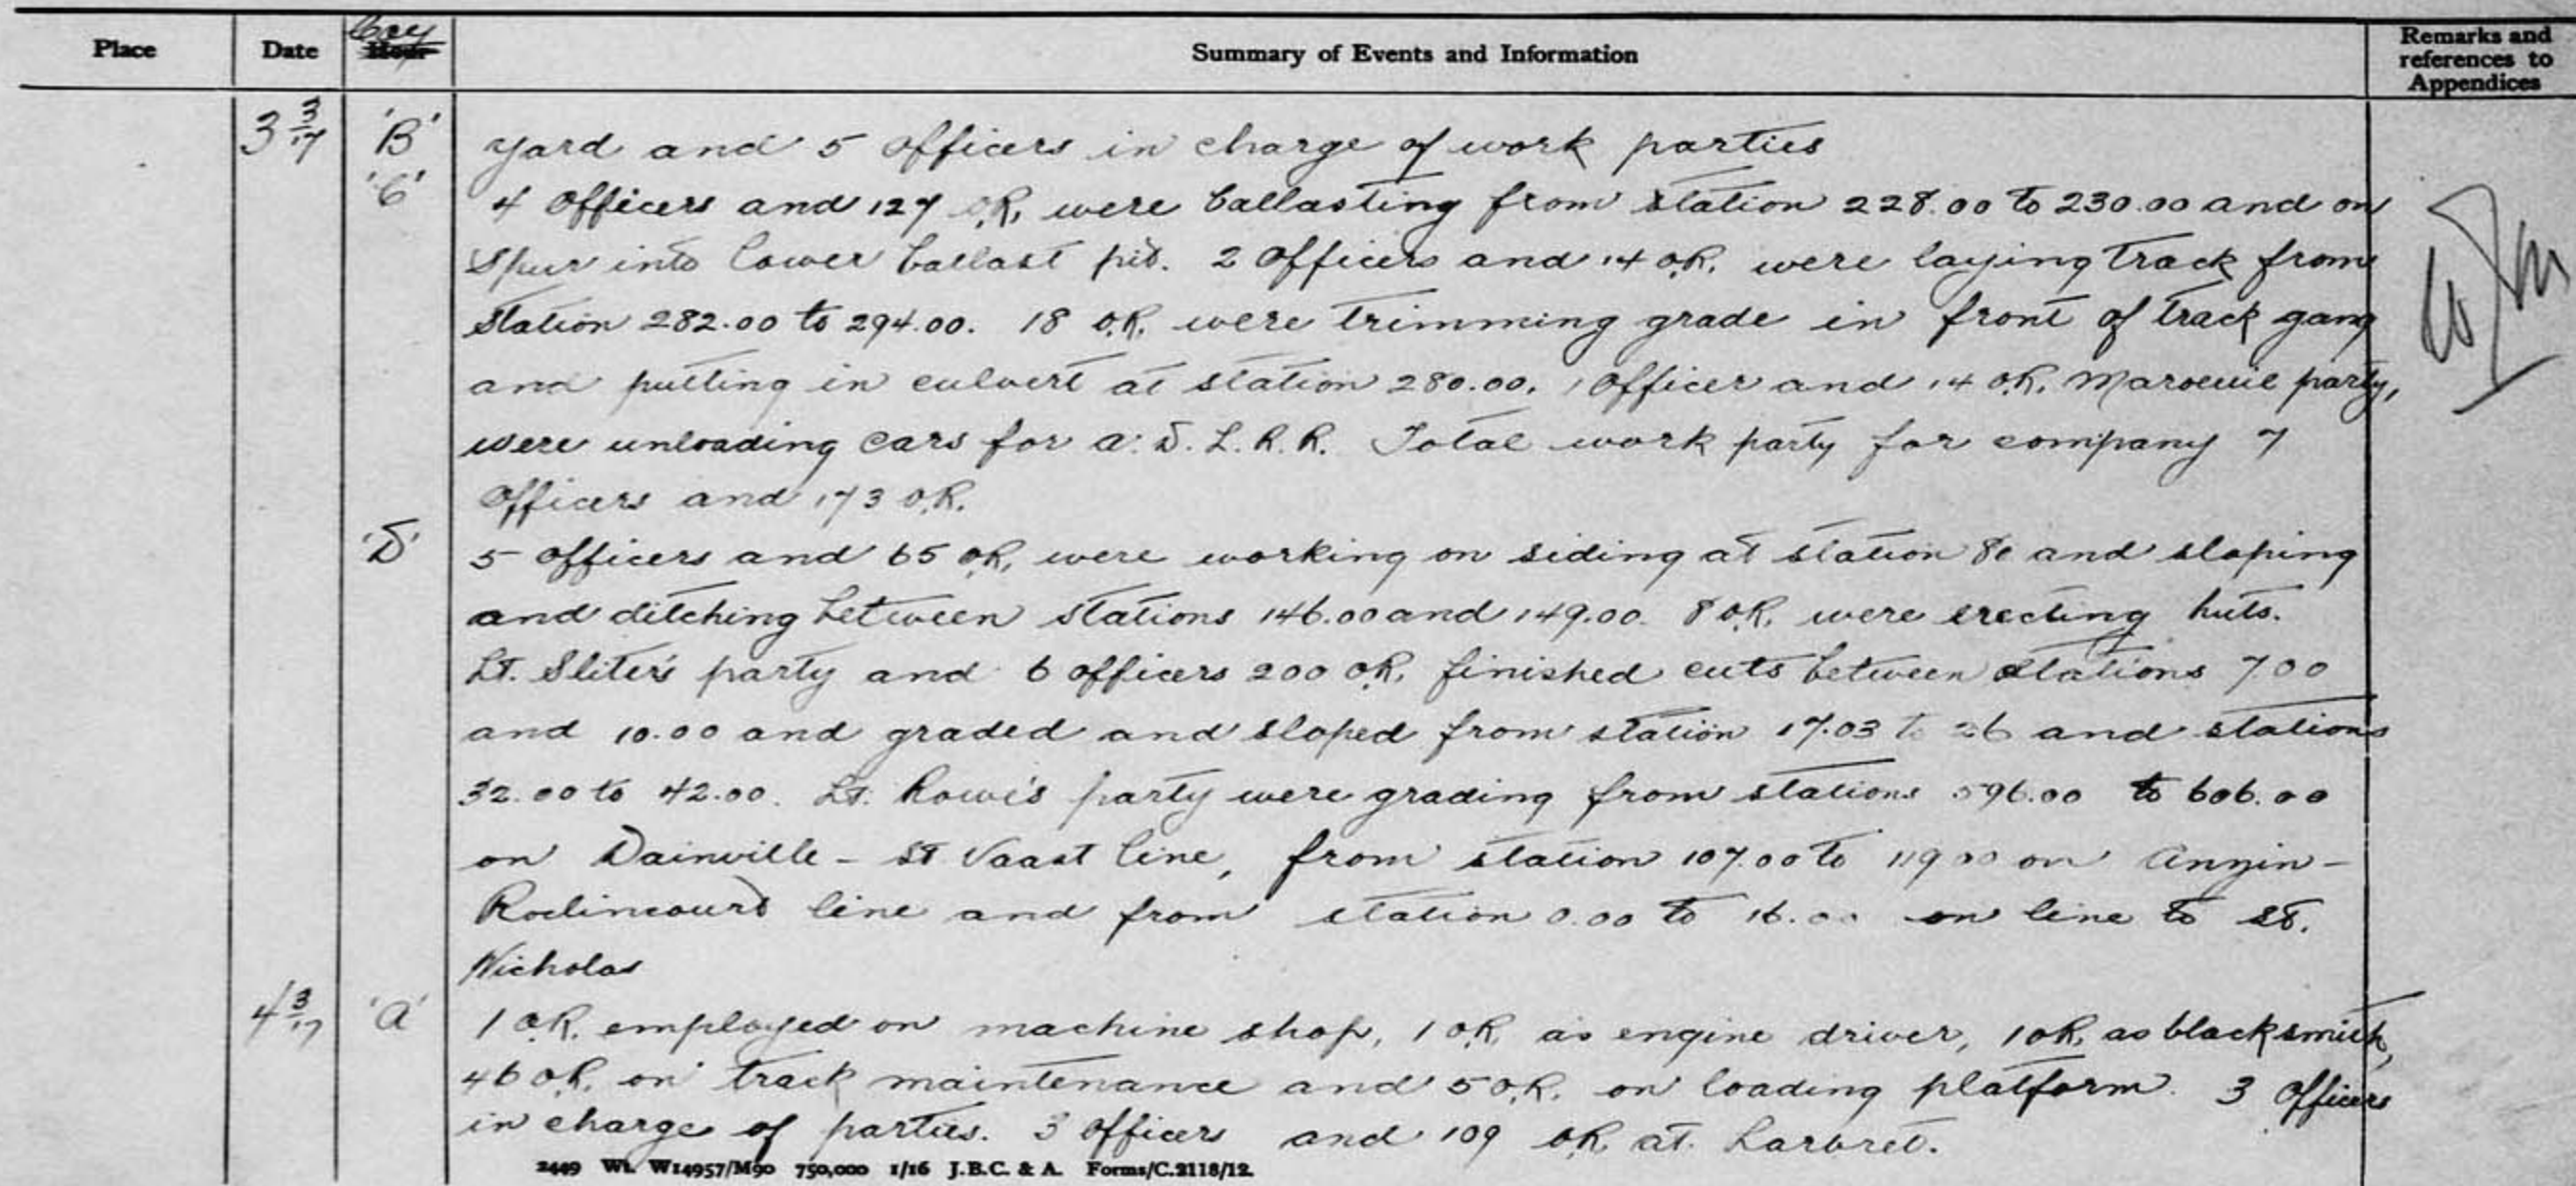 Place Date Coy Hour Summary of Events and Information Remarks and references to Appendices
3 3/17 'B' yard and 5 Officers in charge of work parties
'C' 4 Officers and 127 O.R. were ballasting from station 228.00 to 230.00 and on
Spur into lower ballast pit. 2 Officers and 14 O.R. were laying track from
station 282.00 to 294.00. 18 O.R. were trimming grade in front of track gang
and putting in culvert at station 280.00. 1 Officer and 14 O.R. Maroeuil party,
were unloading cars for A.D.L.R.R. Total work party for company 7
Officers and 173 O.R.
'D' 5 Officers and 65 O.R. were working on siding at station 80 and sloping
and ditching between stations 146.00 and 149.00. 8 O.R. were erecting huts.
Lt. Sliter's party and 6 Officers 200 O.R. finished cuts between stations 7.00
and 10.00 and graded and sloped from station 17.03 to 26 and stations
32.00 to 42.00. Lt. Rowe's party were grading from stations 596.00 to 606.00
on Dainville - St Vaast line, from station 107.00 to 119.00 on Anzin -
Roclincourt line and from station 0.00 to 16.00 on line to St.
Nicholas
4 3/17 'A' 1 O.R. employed on machine shop, 1 O.R. as engine driver, 1 O.R. as blacksmith,
46 O.R. on track maintenance and 5 O.R. on loading platform. 3 Officers
in charge of parties. 3 Officers and 109 O.R. at Larbret.
2449 Wt. W14957/M90 750,000 1/16 J.B.C. & A. Forms/C.2118/12.